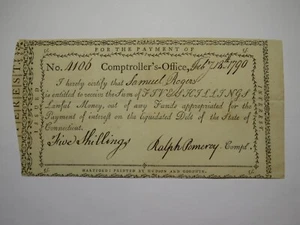 FOR THE PAYMENT OF
No. 4106 Comptroller's-Office, Feb 1790
I hereby certify that Samuel Rogers
is entitled to receive the Sum of FIVE SHILLINGS
Lawful Money, out of any Funds appropriated for the
Payment of interest on the liquidated Debt of the State of
Connecticut.
Five Shillings Ralph Pomeroy Compt.
HARTFORD: PRINTED BY HUDSON AND GOODWIN.
INTEREST
ISSUED